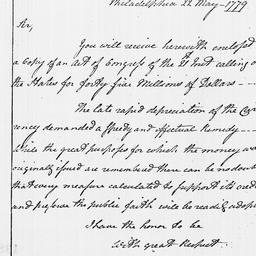 Philadelphia 22 May - 1779
Sir,
You will receive herewith enclosed
a copy of an act of Congress of the 21 Inst calling on
the States for forty five Millions of Dollars —
The late rapid depreciation of the Cur
rency demanded a speedy and effectual Remedy —
While the great purposes for which the money was
originally issued are remembered there can be no doubt
that every measure calculated to support its cred
and preserve the public faith will be readily adop
I have the honor to be
With great Respect